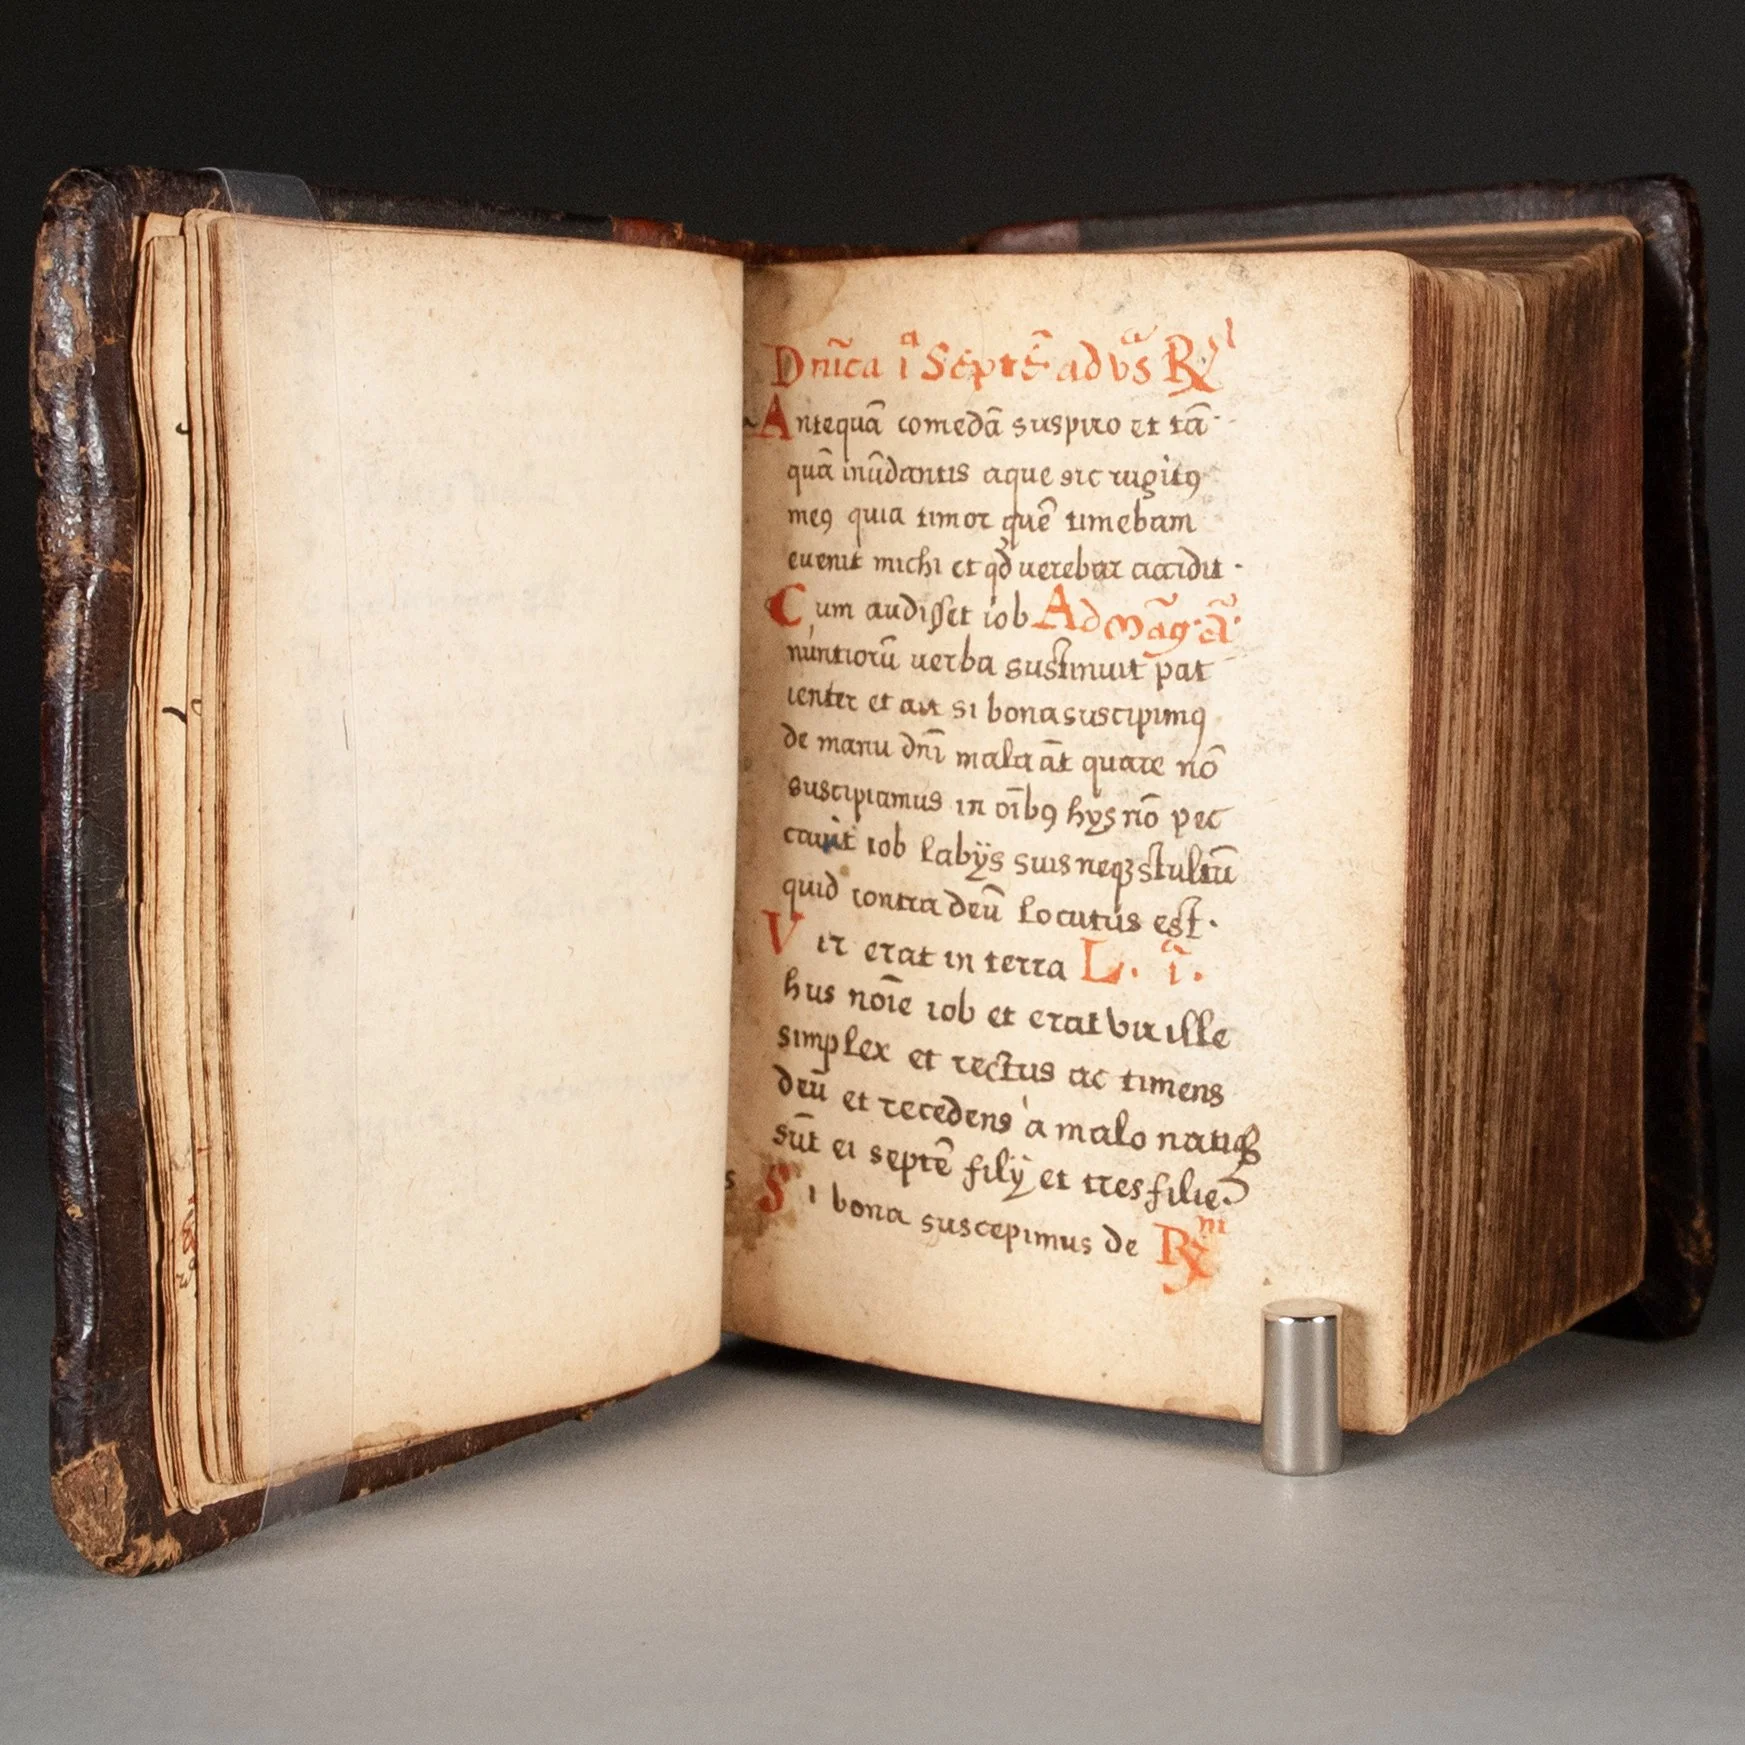 Dnĩca ıᵃ Septẽ ad vᵃ̃s ℟ˡ
Antequã comedã suspiro et tã
quã inũdantis aque sic rugitꝰ
meꝰ quia timor quẽ timebam
euenit michi et qđ uerebar accidit ·
Cum audisset iob Ad Mãg· ã·
nuntiorũ uerba sustinuit pat
ienter et ait si bona suscipimꝰ
de manu dnĩ mala aũt quare nõ
suscipiamus in oĩbꝰ hys nõ pec
cauit iob labÿs suis neqꝫ stultũ
quid contra deũ locutus est ·
Vir erat in terra L. ı̃.
hus noĩe iob et erat vir ille
simplex et rectus ac timens
deũ et recedens a malo natiqꝫ
sũt ei septẽ filÿ et tres filie
Si bona suscepimus de ℟ᵐ